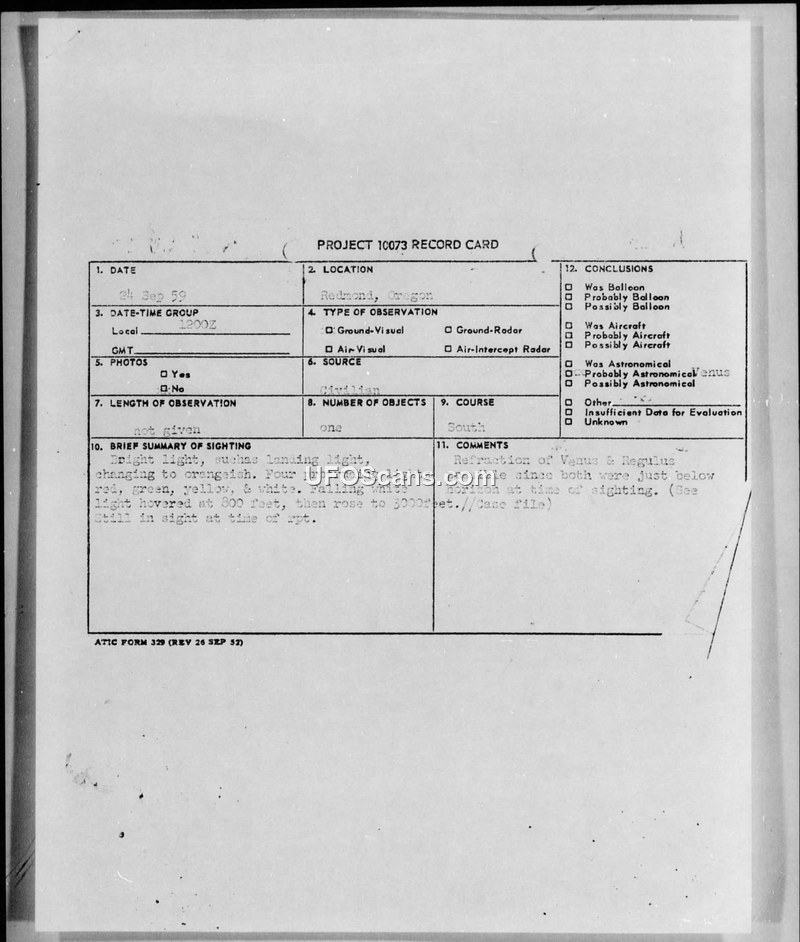 PROJECT 10073 RECORD CARD
1. DATE
24 Sep 59
2. LOCATION
Redmond, Oregon
3. DATE-TIME GROUP
Local 1200Z
GMT
4. TYPE OF OBSERVATION
☐ Ground-Visual ☐ Ground-Radar
☐ Air-Visual ☐ Air-Intercept Radar
5. PHOTOS
☐ Yes
☐ No
6. SOURCE
Civilian
7. LENGTH OF OBSERVATION
not given
8. NUMBER OF OBJECTS
one
9. COURSE
South
10. BRIEF SUMMARY OF SIGHTING
Bright light, suchas landing light,
changing to orangeish. Four
red, green, yellow, & white. Falling white
light hovered at 800 feet, then rose to 3000feet.//
Still in sight at time of rpt.
11. COMMENTS
Refraction of Venus & Regulus
since both were just below
horizon at time of sighting. (See
Case file)
12. CONCLUSIONS
☐ Was Balloon
☐ Probably Balloon
☐ Possibly Balloon
☐ Was Aircraft
☐ Probably Aircraft
☐ Possibly Aircraft
☐ Was Astronomical
☐ Probably Astronomical Venus
☐ Possibly Astronomical
☐ Other
☐ Insufficient Data for Evaluation
☐ Unknown
ATIC FORM 329 (REV 26 SEP 52)
UFOScans.com